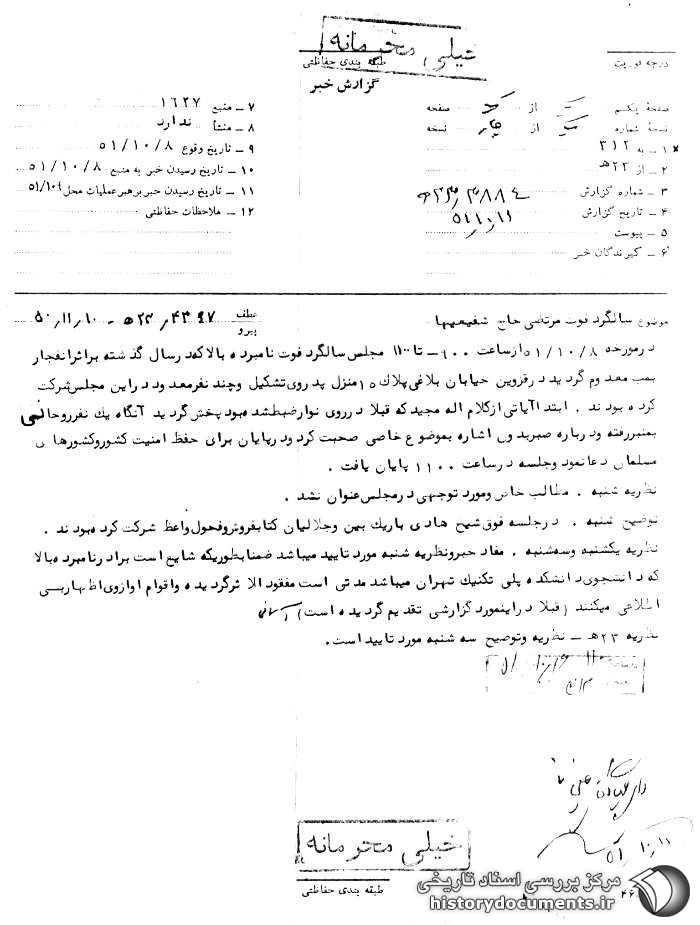 خیلی محرمانه
طبقه بندی حفاظتی
درجه فوریت
گزارش خبر
صفحهٔ یکم از صفحه
نسخهٔ شماره از نسخه
۱ – به ۳۱۲
۲ – از ۲۳ه
۳ – شماره گزارش
۴ – تاریخ گزارش
۵ – پیوست
۶ – گیرندگان خبر
۷ – منبع ۱۶۲۷
۸ – منشأ ندارد
۹ – تاریخ وقوع ۵۱/۱۰/۸
۱۰ – تاریخ رسیدن خبر به منبع ۵۱/۱۰/۸
۱۱ – تاریخ رسیدن خبر برهبر عملیات محل
۱۲ – ملاحظات حفاظتی
موضوع سالگرد فوت مرتضی حاج شفیعیها
عطف
پیرو
۵۰/۱۱/۱۰
درمورخه ۵۱/۱۰/۸ ازساعت ۹۰۰ – تا ۱۱۰۰ مجلس سالگرد فوت نامبرده بالا که در سال گذشته براثر انفجار
بمب معدوم گردید در قزوین خیابان بلاغی پلاک ۱۵ منزل پدر وی تشکیل و چند نفر معدود در این مجلس شرکت
کرده بودند . ابتدا آیاتی از کلام اله مجید که قبلا در روی نوار ضبط شده بود پخش گردید آنگاه یک نفر روحانی
بمنبر رفته و درباره صبر بدون اشاره بموضوع خاصی صحبت کرد و درپایان برای حفظ امنیت کشور و کشورهای
مسلمان دعا نمود و جلسه در ساعت ۱۱۰۰ پایان یافت .
نظریه شنبه . مطالب خاص و مورد توجهی در مجلس عنوان نشد .
توضیح شنبه . در جلسه فوق شیخ هادی باریک بین و جلالیان کتابفروش و فحول واعظ شرکت کرده بودند .
نظریه یکشنبه و سه شنبه . مفاد خبر و نظریه شنبه مورد تایید میباشد ضمنا بطوریکه شایع است برادر نامبرده بالا
که دانشجوی دانشکده پلی تکنیک تهران میباشد مدتی است مفقود الاثر گردیده و اقوام او از وی اظهار بی
اطلاعی میکنند (قبلا در اینمورد گزارشی تقدیم گردیده است)
نظریه ۲۳ه – نظریه و توضیح سه شنبه مورد تایید است.
خیلی محرمانه
طبقه بندی حفاظتی
مرکز بررسی اسناد تاریخی
historydocuments.ir